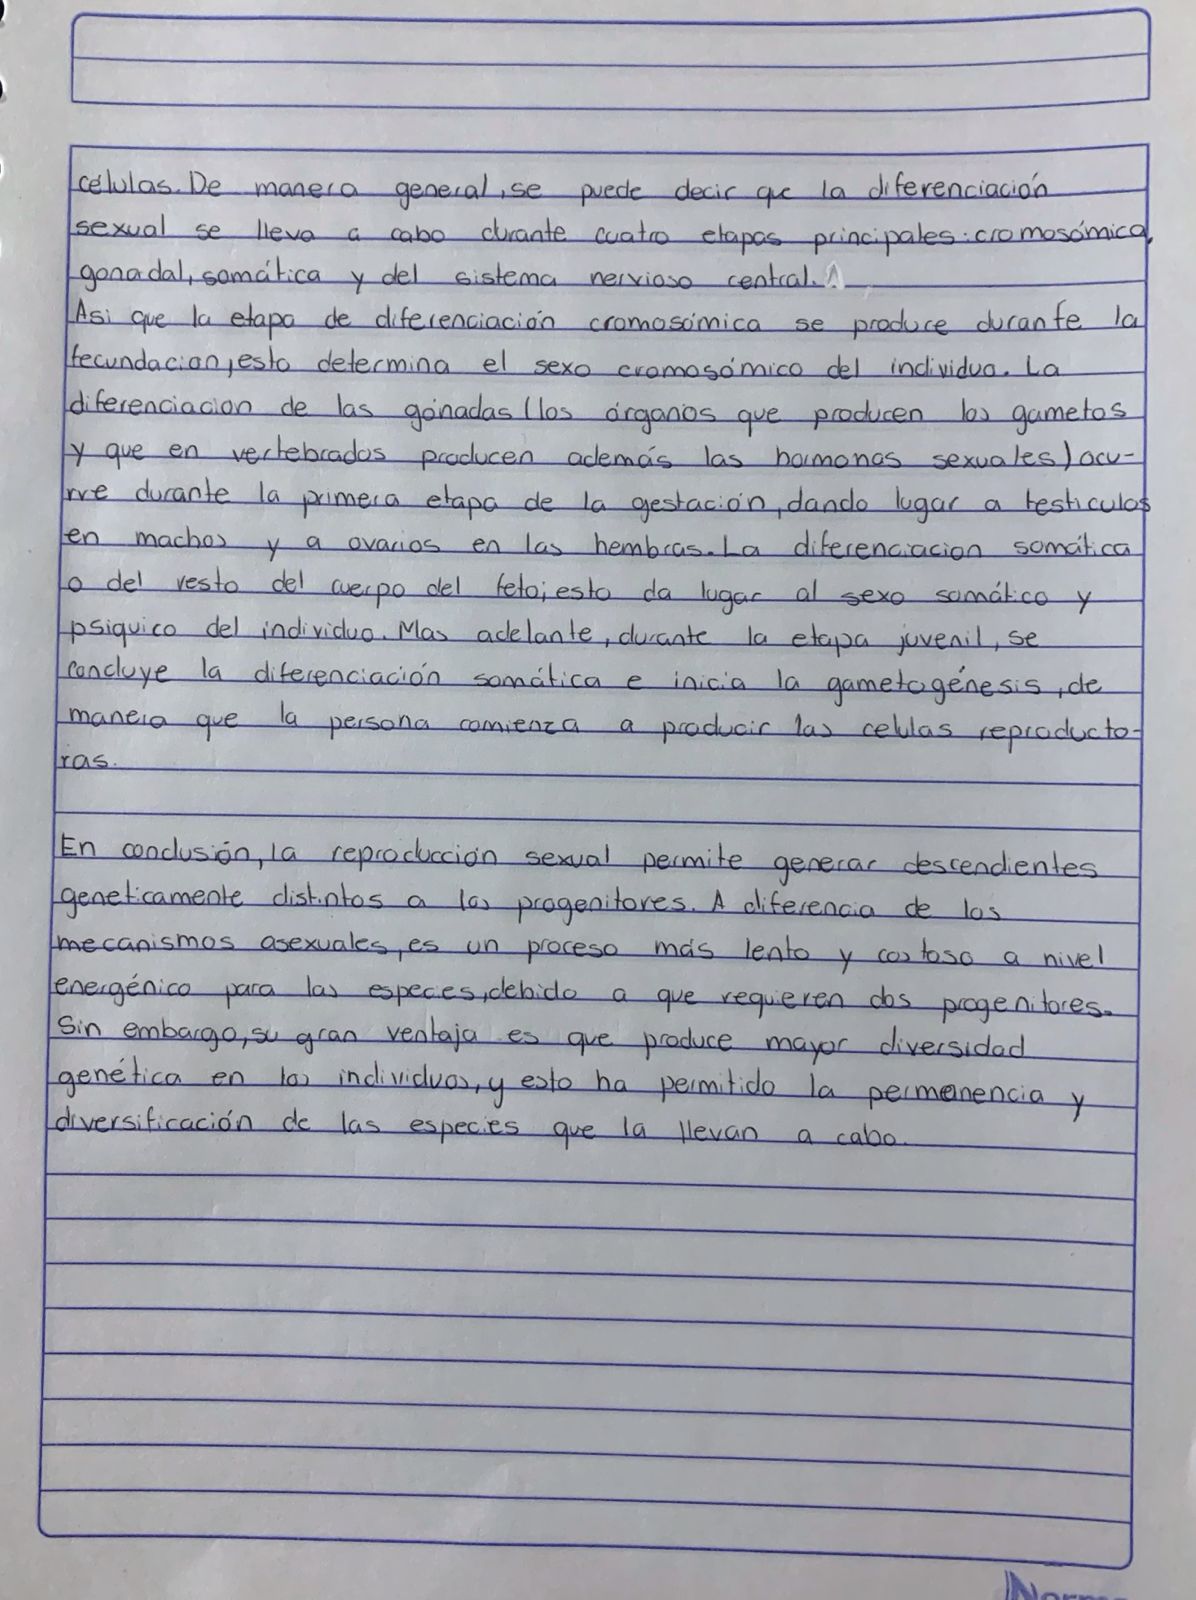 células. De manera general, se puede decir que la diferenciación
sexual se lleva a cabo durante cuatro etapas principales: cromosómica,
gonadal, somática y del sistema nervioso central.
Asi que la etapa de diferenciación cromosómica se produce durante la
fecundacion, esto determina el sexo cromosómico del individuo. La
diferenciacion de las gónadas (los órganos que producen los gametos
y que en vertebrados producen además las hormonas sexuales) ocu-
rre durante la primera etapa de la gestación, dando lugar a testiculos
en machos y a ovarios en las hembras. La diferenciacion somática
o del resto del cuerpo del feto; esto da lugar al sexo somático y
psiquico del individuo. Mas adelante, durante la etapa juvenil, se
concluye la diferenciación somática e inicia la gametogénesis, de
manera que la persona comienza a producir las celulas reproducto-
ras.
En conclusión, la reproducción sexual permite generar descendientes
geneticamente distintos a los progenitores. A diferencia de los
mecanismos asexuales, es un proceso más lento y costoso a nivel
energénico para las especies, debido a que requieren dos progenitores.
Sin embargo, su gran ventaja es que produce mayor diversidad
genética en los individuos, y esto ha permitido la permanencia y
diversificación de las especies que la llevan a cabo.